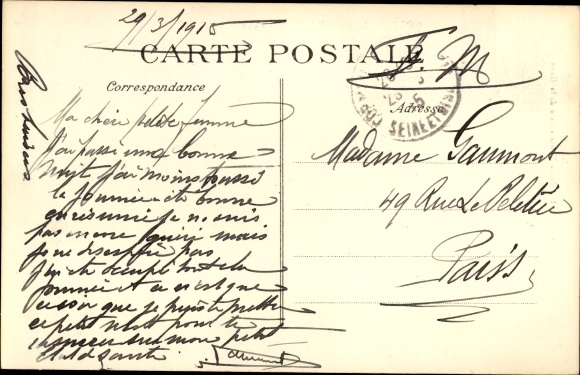 29/3/1915
CARTE POSTALE
F. M
Correspondance
Adresse
CORBEIL SEINE ET OISE
Ma chère petite femme
J'ai passé une bonne
nuit j'ai moins toussé
la journée a été bonne
en résumé je ne suis
pas encore guéri mais
je ne désespère pas
j'ai été occupé toute la
journée et ce n'est que
ce soir que je puis te mettre
ce petit mot pour te
rassurer sur mon petit
état de santé
Gaumont
Bons baisers
Madame Gaumont
49 Rue Le Peletier
Paris